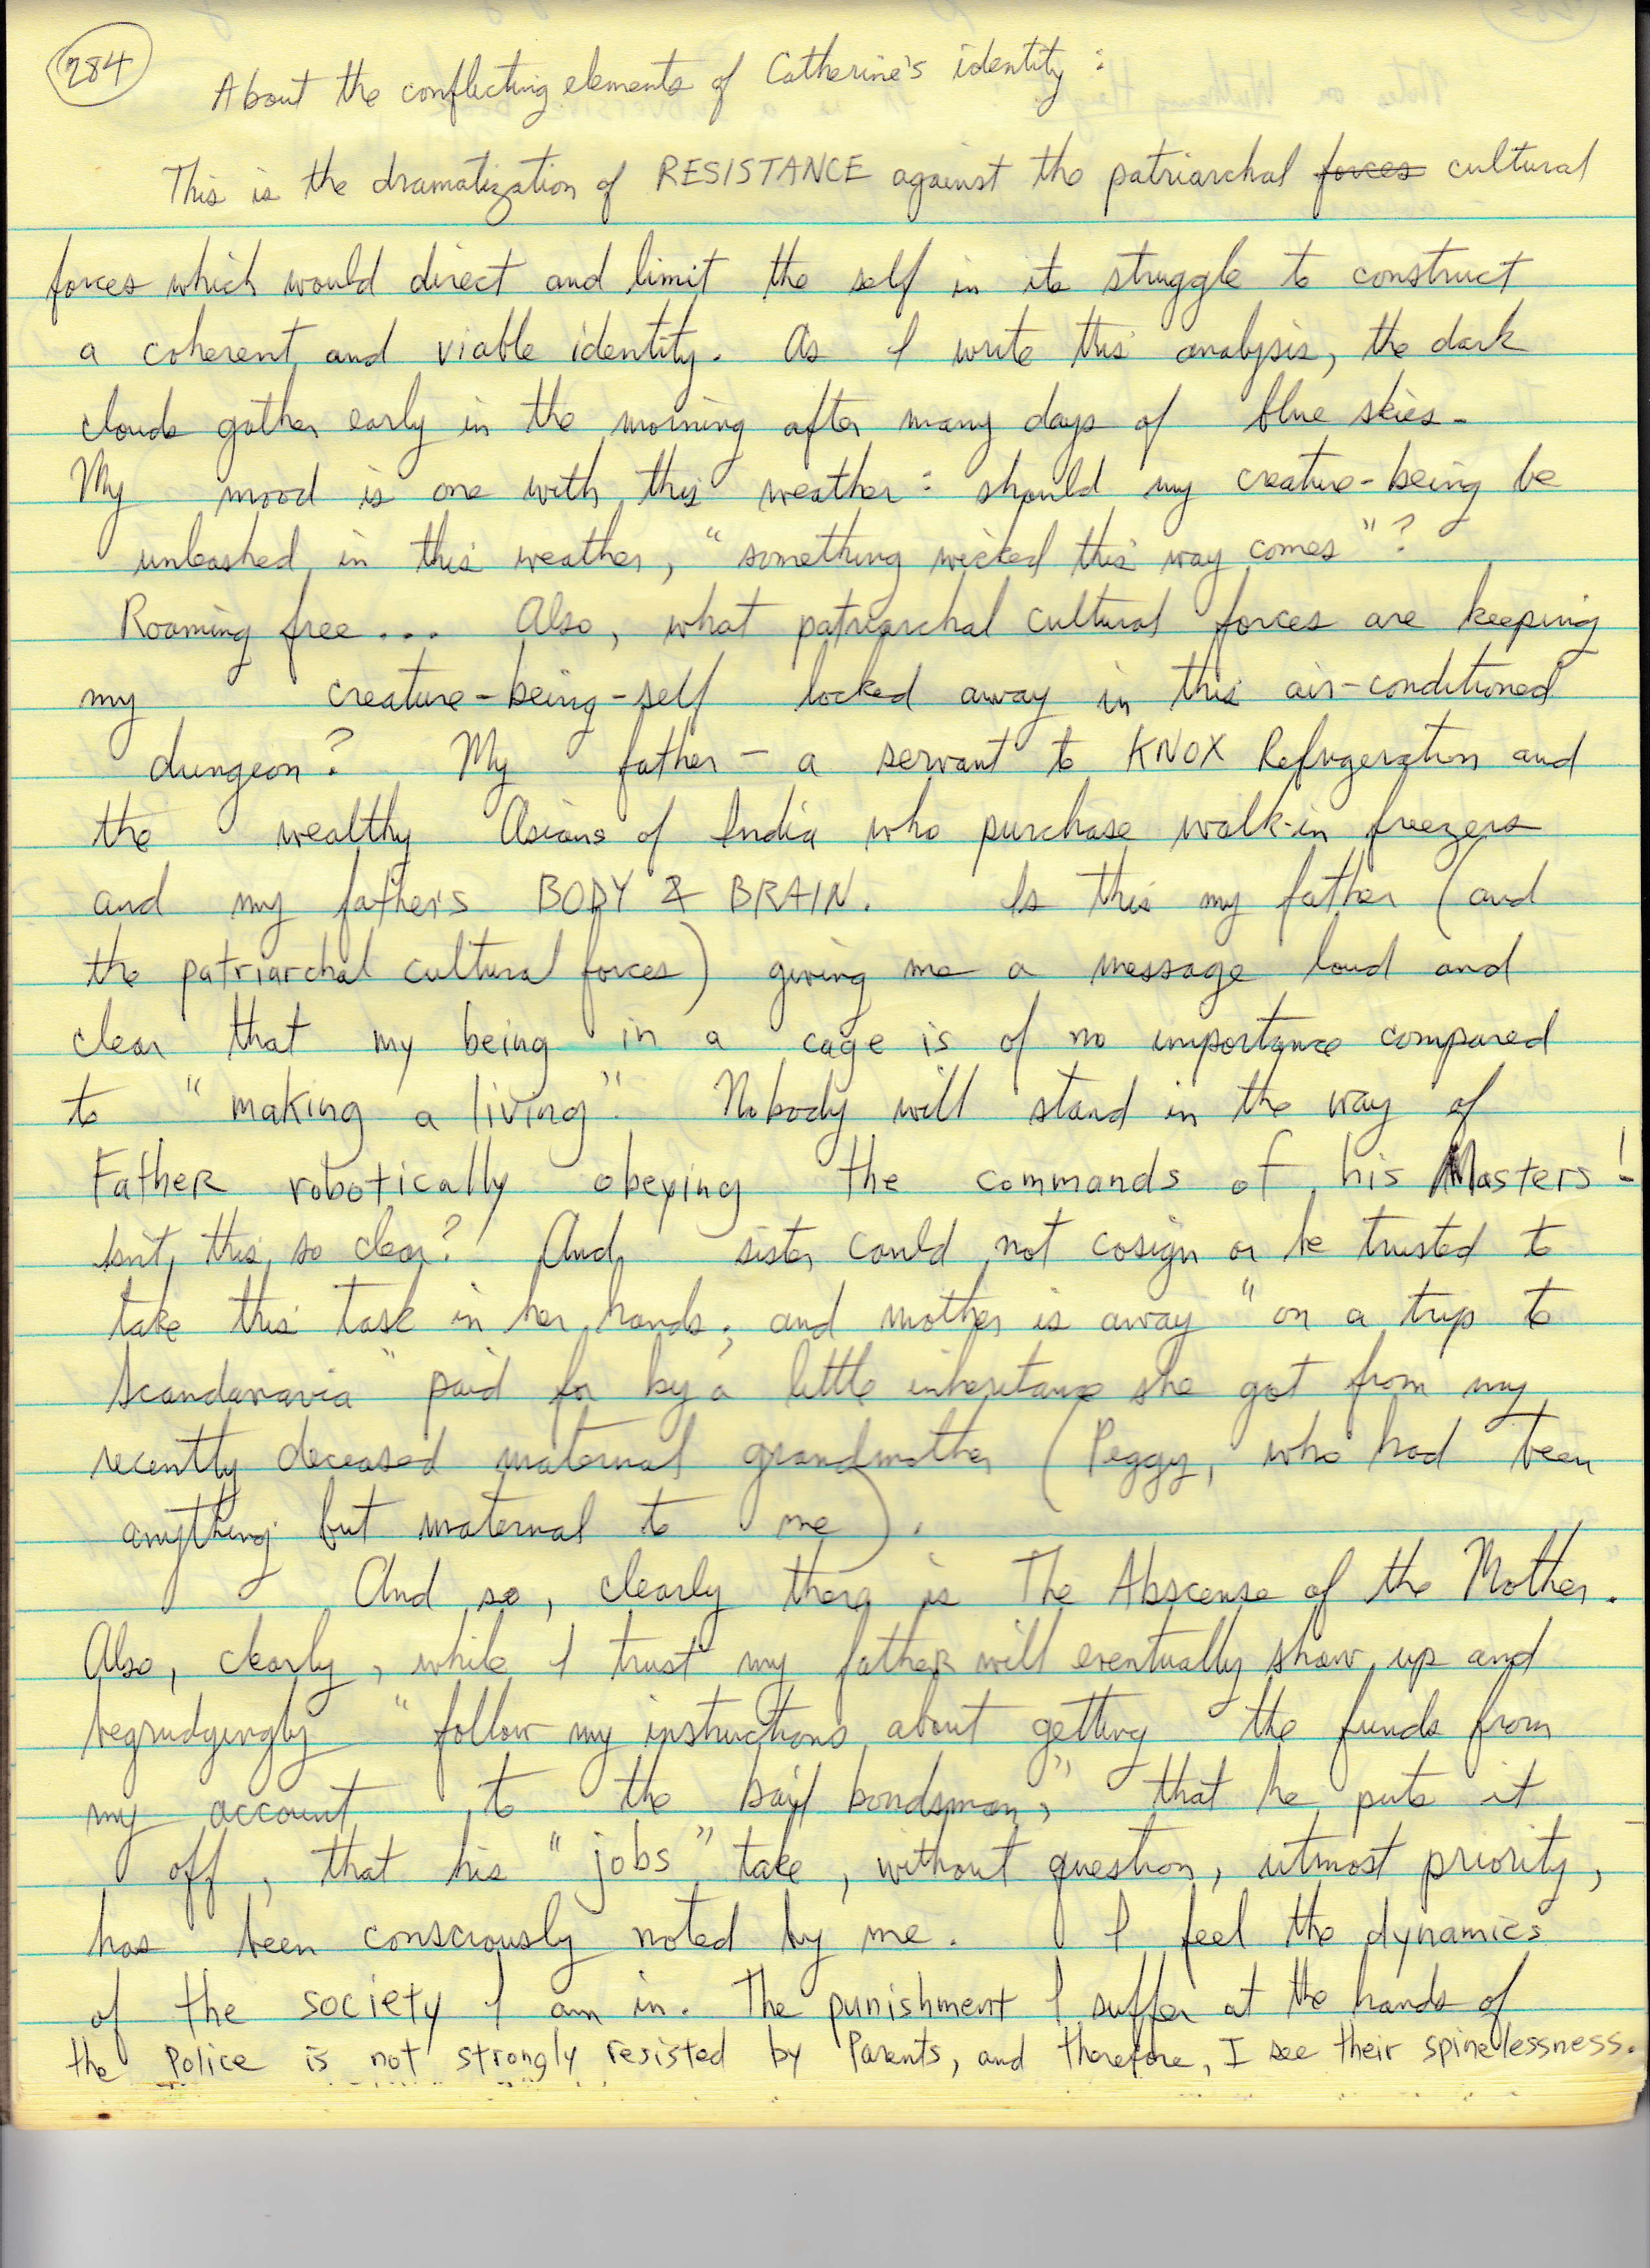 284
About the conflicting elements of Catherine's identity:
This is the dramatization of RESISTANCE against the patriarchal forces cultural
forces which would direct and limit the self in its struggle to construct
a coherent and viable identity. As I write this analysis, the dark
clouds gather early in the morning after many days of blue skies.
My mood is one with this weather: should my creature-being be
unleashed in this weather, "something wicked this way comes"?
Roaming free... Also, what patriarchal cultural forces are keeping
my creature-being-self locked away in this air-conditioned
dungeon? My father - a servant to KNOX Refrigeration and
the wealthy Asians of India who purchase walk-in freezers
and my father's BODY & BRAIN. Is this my father (and
the patriarchal cultural forces) giving me a message loud and
clear that my being in a cage is of no importance compared
to "making a living". Nobody will stand in the way of
Father robotically obeying the commands of his Masters!
Isn't this so clear? And, sister could not cosign or be trusted to
take this task in her hands; and mother is away "on a trip to
Scandanavia" paid for by a little inheritance she got from my
recently deceased maternal grandmother (Peggy, who had been
anything but maternal to me).
And so, clearly there is The Abscense of the Mother.
Also, clearly, while I trust my father will eventually show up and
begrudgingly "follow my instructions about getting the funds from
my account to the bail bondsman," that he puts it
off, that his "jobs" take, without question, utmost priority,
has been consciously noted by me. I feel the dynamics
of the society I am in. The punishment I suffer at the hands of
the Police is not strongly resisted by Parents, and therefore, I see their spinelessness.